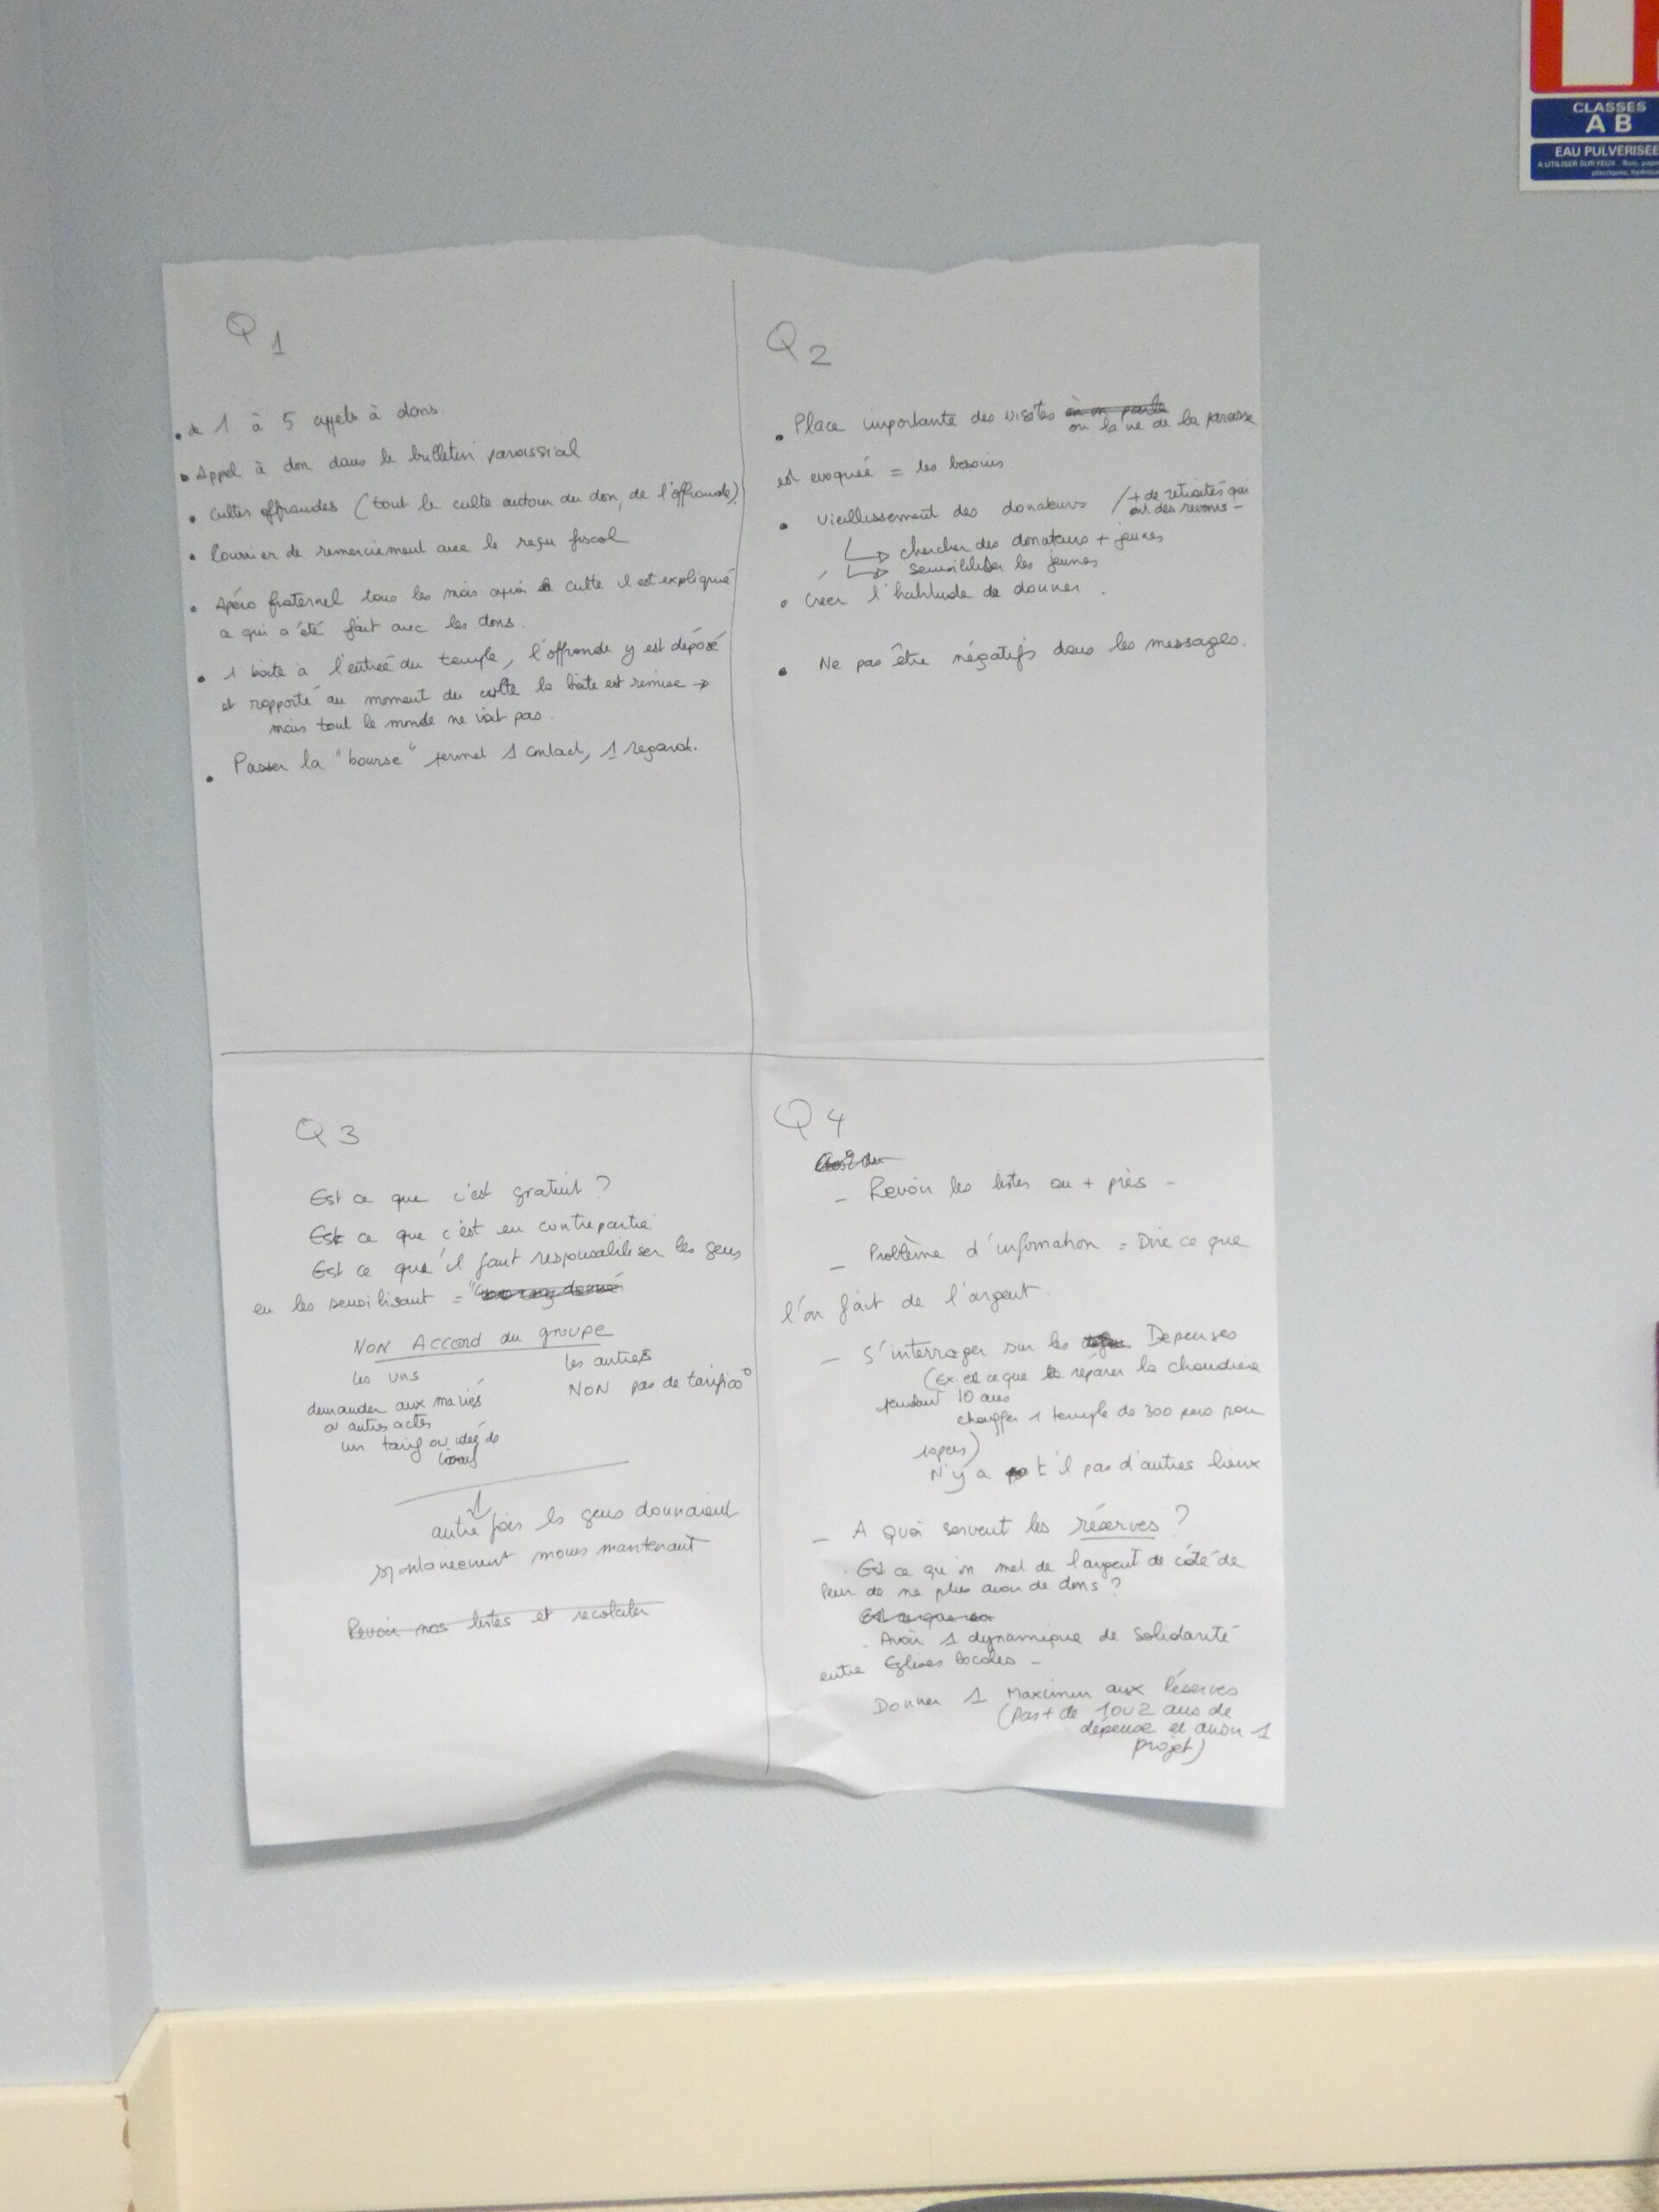 CLASSES
A B
EAU PULVERISEE
Q 1
• de 1 à 5 appels à dons.
• Appel à don dans le bulletin paroissial
• cultes offrandes (tout le culte autour du don, de l'offrande)
• Courrier de remerciement avec le reçu fiscal
• Apéro fraternel tous les mois après le culte il est expliqué
ce qui a été fait avec les dons.
• 1 boite à l'entrée du temple, l'offrande y est déposé
et rapporté au moment du culte la boite est remise →
mais tout le monde ne voit pas.
• Passer la "bourse" permet 1 contact, 1 regard.
Q 2
• Place importante des visites où on parle
où la vie de la paroisse
est evoquée = les besoins
• Vieillissement des donateurs / + de retraités qui
ont des revenus -
↳ chercher des donateurs + jeunes
↳ sensibiliser les jeunes
• Créer l'habitude de donner.
• Ne pas être négatifs dans les messages.
Q 3
Est ce que c'est gratuit ?
Est ce que c'est en contrepartie
Est ce que il faut responsabiliser les gens
en les sensibilisant =
NON Accord du groupe
les uns
les autres
demander aux mariés
NON pas de tarif
ou autres actes
un tarif ou idée de
↓
autre fois les gens donnaient
spontanement moins maintenant
Revoir nos listes et
Q 4
- Revoir les listes au + près -
- Problème d'information = Dire ce que
l'on fait de l'argent.
- S'interroger sur les Depenses
(Ex. est ce que réparer la chaudière
pendant 10 ans
chauffer 1 temple de 300 pers pour
10pers)
N'y a t'il pas d'autres lieux
- A quoi servent les réserves ?
. Est ce qu'on met de l'argent de côté de
Peur de ne plus avoir de dons ?
. Avoir 1 dynamique de solidarité
entre Eglises locales -
Donner 1 Maximum aux Réserves
(Pas + de 1 ou 2 ans de
dépense et avoir 1
projet)